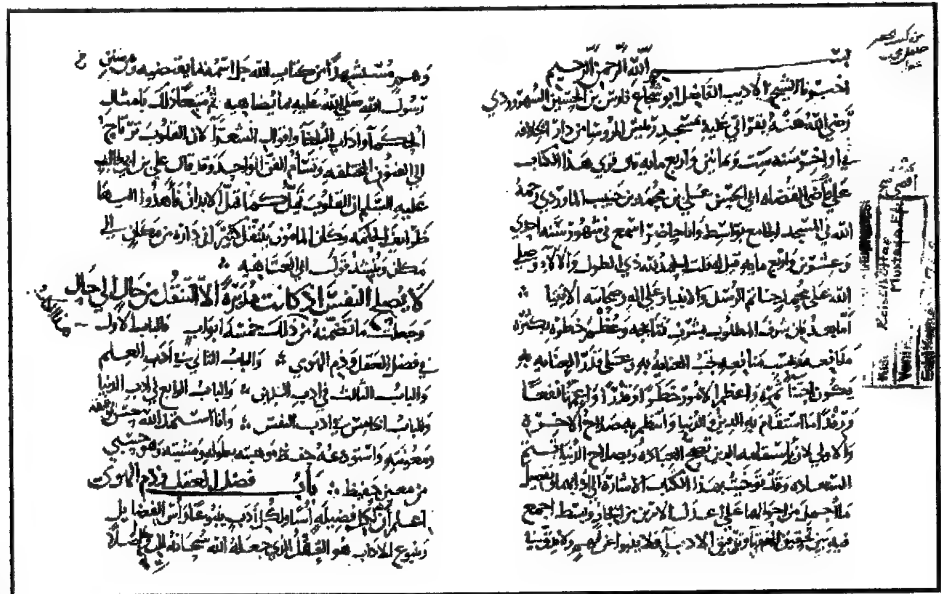 بسم الله الرحمن الرحيم
اخبرنا الشيخ الاديب الفاضل ابو شجاع فارس بن الحسين السهروردي
رضي الله عنه بقراتي عليه بمسجد من دار الخلافه
في اواخر سنه ست وثمانين واربع مايه قال قري هذا الكتاب
على اقضى القضاه ابي الحسن علي بن محمد بن حبيب الماوردي رحمه
الله في المسجد الجامع وانا حاضر اسمع في شهور سنه احدى
وعشرين واربع مايه قيل له قلت الحمد لله ذي الطول والالاء وصلى
الله على محمد خاتم الرسل والانبياء وعلى اله وصحابته الاتقيا
اما بعد فان شرف المطلوب بشرف نتايجه وعظم خطره بكثره
منافعه وبحسب منافعه تجب العنايه به وعلى قدر العنايه به
يكون اجتنا ثمره واعظم الامور خطرا وقدرا واعمها نفعا
ورفدا ما استقام به الدين والدنيا وانتظم به صلاح الاخره
والاولى لان باستقامه الدين تصح العباده وبصلاح الدنيا تتم
السعاده وقد توخيت بهذا الكتاب الاشاره الى ادابهما وتفصيل
ما اجمل من احوالهما على اعدل الامرين من ايجاز وبسط اجمع
فيه بين تحقيق الفقها وترقيق الادبا فلا ينبو عن فهم ولا يدق في
وهم مستشهدا من كتاب الله جل اسمه بما يقتضيه ومن سنن
رسول الله صلى الله عليه بما يضاهيه ثم متبعا ذلك بامثال
الحكما واداب البلغا واقوال الشعرا لان القلوب ترتاح
الى الفنون المختلفه وتسام الفن الواحد وقد قال علي بن ابي طالب
عليه السلم ان القلوب تمل كما تمل الابدان فاهدوا اليها
طرايف الحكمه وكان المامون يتنقل كثيرا في داره من مكان الى
مكان وينشد قول ابي العتاهيه
لا يصلح النفس اذ كانت مدبره الا التنقل من حال الى حال
وجعلت ما تضمنه من ذلك خمسه ابواب فالباب الاول
في فضل العقل وذم الهوى والباب الثاني في ادب العلم
والباب الثالث في ادب الدين والباب الرابع في ادب الدنيا
والباب الخامس في ادب النفس وانا استمد الله حسن
ومعونته واستودعه حفظ موهبته بطوله ومشيته وهو حسبي
من معين وحفيظ باب فضل العقل وذم الهوى
اعلم ان لكل فضيله اسا ولكل ادب ينبوعا واس الفضايل
وينبوع الاداب هو العقل الذي جعله الله سبحانه للدين اصلا
Reisülküttap
Mustafa Ef.